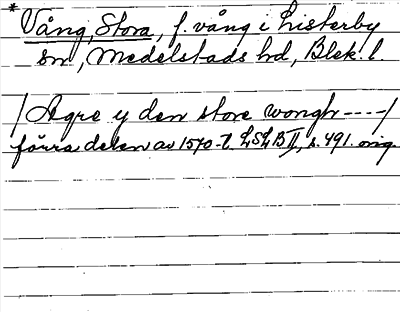 * Vång, Stora, f. vång i Listerby
sn, Medelstads hd, Blek. l.
/Agre y den store wongh ----/
förra delen av 1570-t. LSLB II, s. 491. orig.